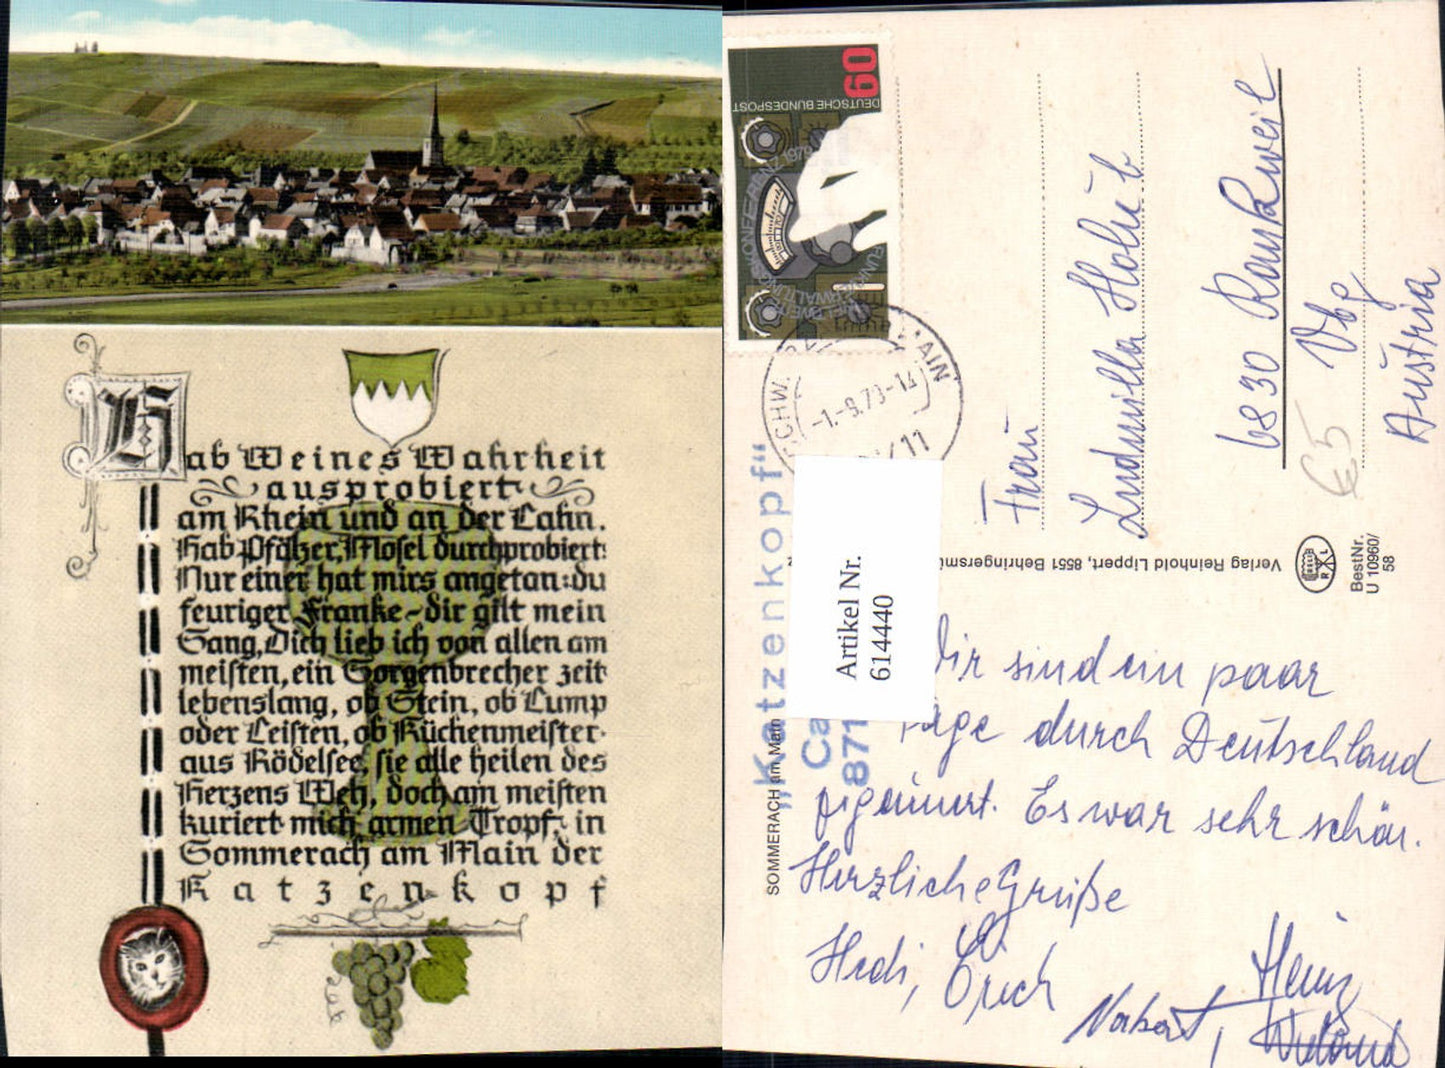 Hab Weines Wahrheit
ausprobiert
am Rhein und an der Lahn.
Hab Pfälzer, Mosel durchprobiert:
Nur einer hat mirs angetan: du
feuriger Franke - dir gilt mein
Sang, Dich lieb ich von allen am
meisten, ein Sorgenbrecher zeit
lebenslang, ob Stein, ob Lump
oder Leisten, ob Küchenmeister
aus Rödelsee, sie alle heilen des
Herzens Weh, doch am meisten
kuriert mich armen Tropf, in
Sommerach am Main der
Katzenkopf
60
DEUTSCHE BUNDESPOST
FUNKVERWALTUNGSKONFERENZ 1979
MAIN
-1.-9.79-14
11
„Katzenkopf“
Ca
871
SOMMERACH am Main
Artikel Nr.
614440
Verlag Reinhold Lippert, 8551 Behringersmü
R L
BestNr.
U 10960/
58
Frau
Ludmilla Holub
6830 Rankweil
Vbg
Austria
€5
Wir sind ein paar
Tage durch Deutschland
Es war sehr schön.
Herzliche Grüße
Hedi, Erich
Norbert, Heinz
Wieland